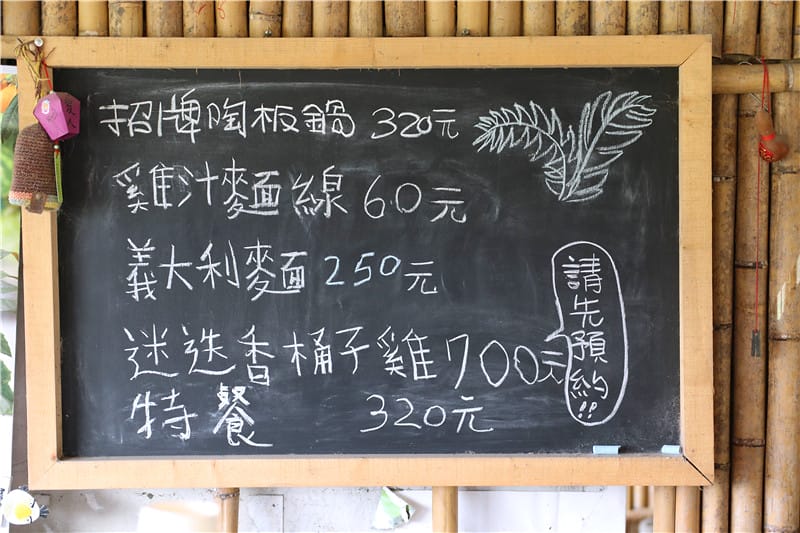 招牌陶板鍋 320元
雞汁麵線 60元
義大利麵 250元
迷迭香桶子雞700元
請先預約!!
特餐 320元